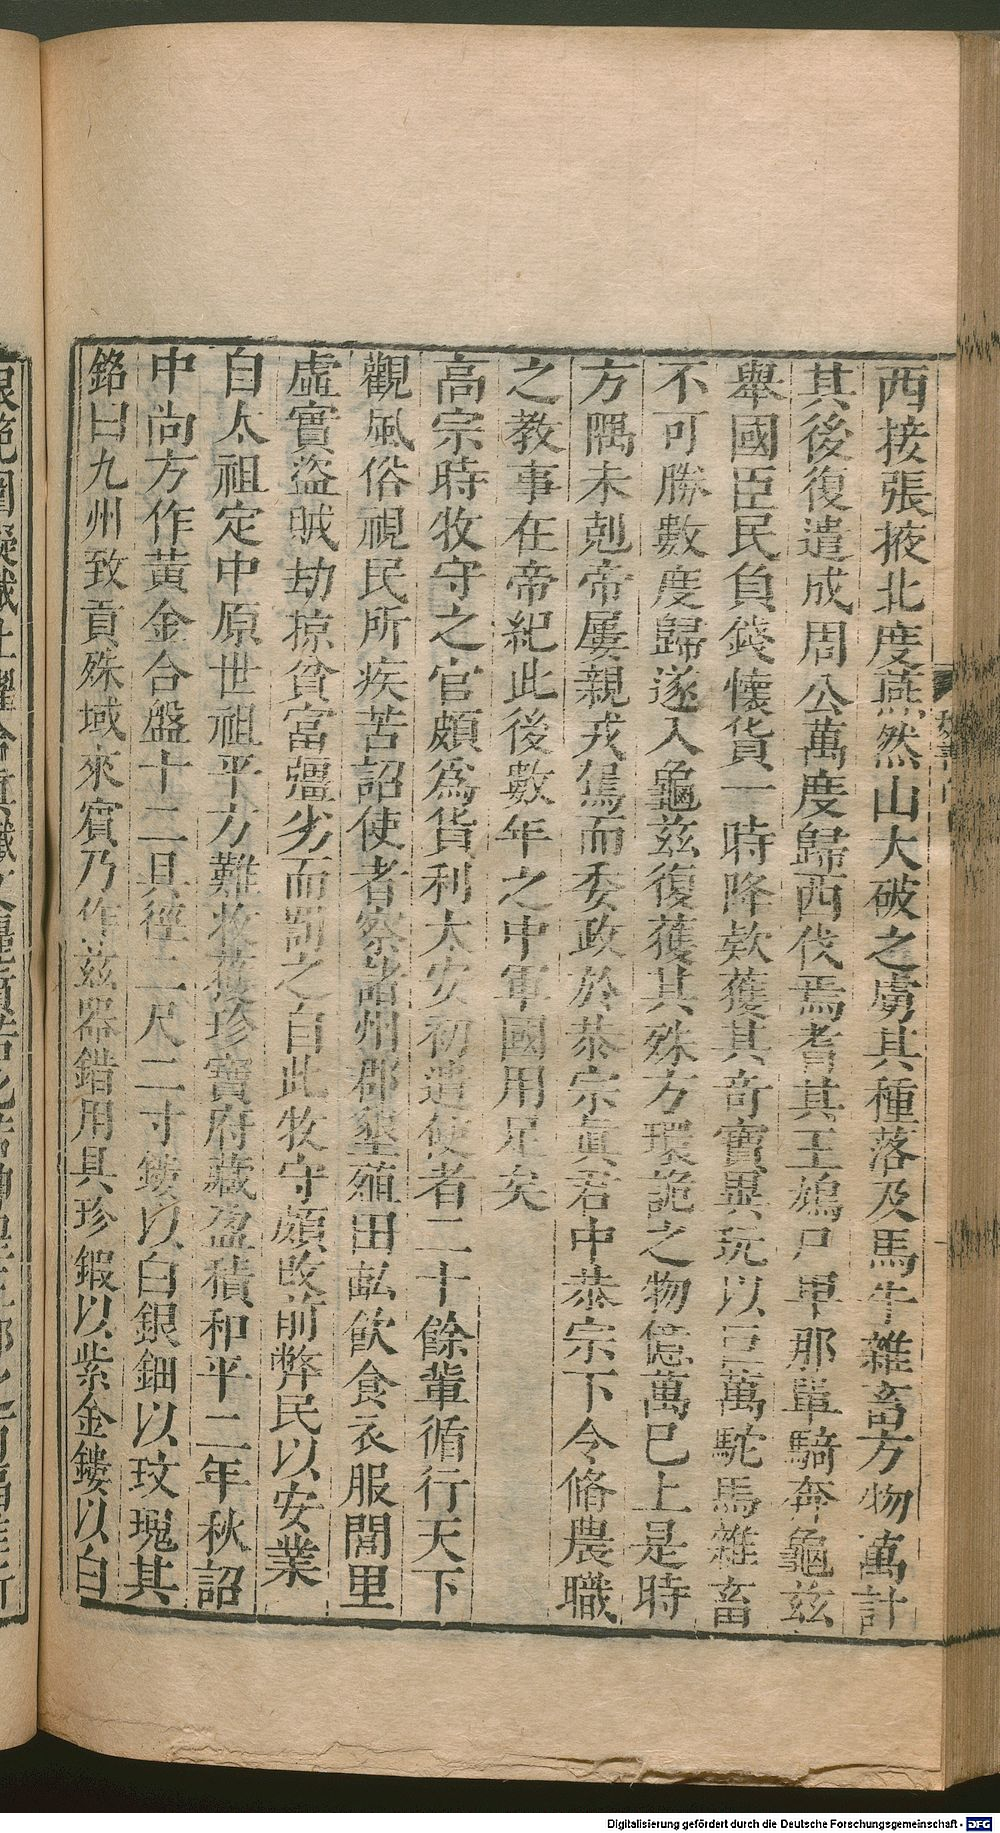 西接張掖北度燕然山大破之虜其種落及馬牛雜畜方物萬計
其後復遣成周公萬度歸西伐焉耆其王鳩尸卑那單騎奔龜茲
舉國臣民負錢懷貨一時降欵獲其奇寶異玩以巨萬駝馬雜畜
不可勝數度歸遂入龜茲復獲其殊方瓌詭之物億萬已上是時
方隅未剋帝屢親戎駕而委政於恭宗眞君中恭宗下令脩農職
之教事在帝紀此後數年之中軍國用足矣
高宗時牧守之官頗爲貨利太安初遣使者二十餘輩循行天下
觀風俗視民所疾苦詔使者察諸州郡墾殖田畝飲食衣服閭里
虛實盜賊劫掠貧富彊劣而罰之自此牧守頗改前弊民以安業
自太祖定中原世祖平方難收穫珍寶府藏盈積和平二年秋詔
中尚方作黃金合盤十二具徑二尺二寸鏤以白銀鈿以玫瑰其
銘曰九州致貢殊域來賓乃作茲器錯用具珍鍛以紫金鏤以白
Digitalisierung gefördert durch die Deutsche Forschungsgemeinschaft - DFG